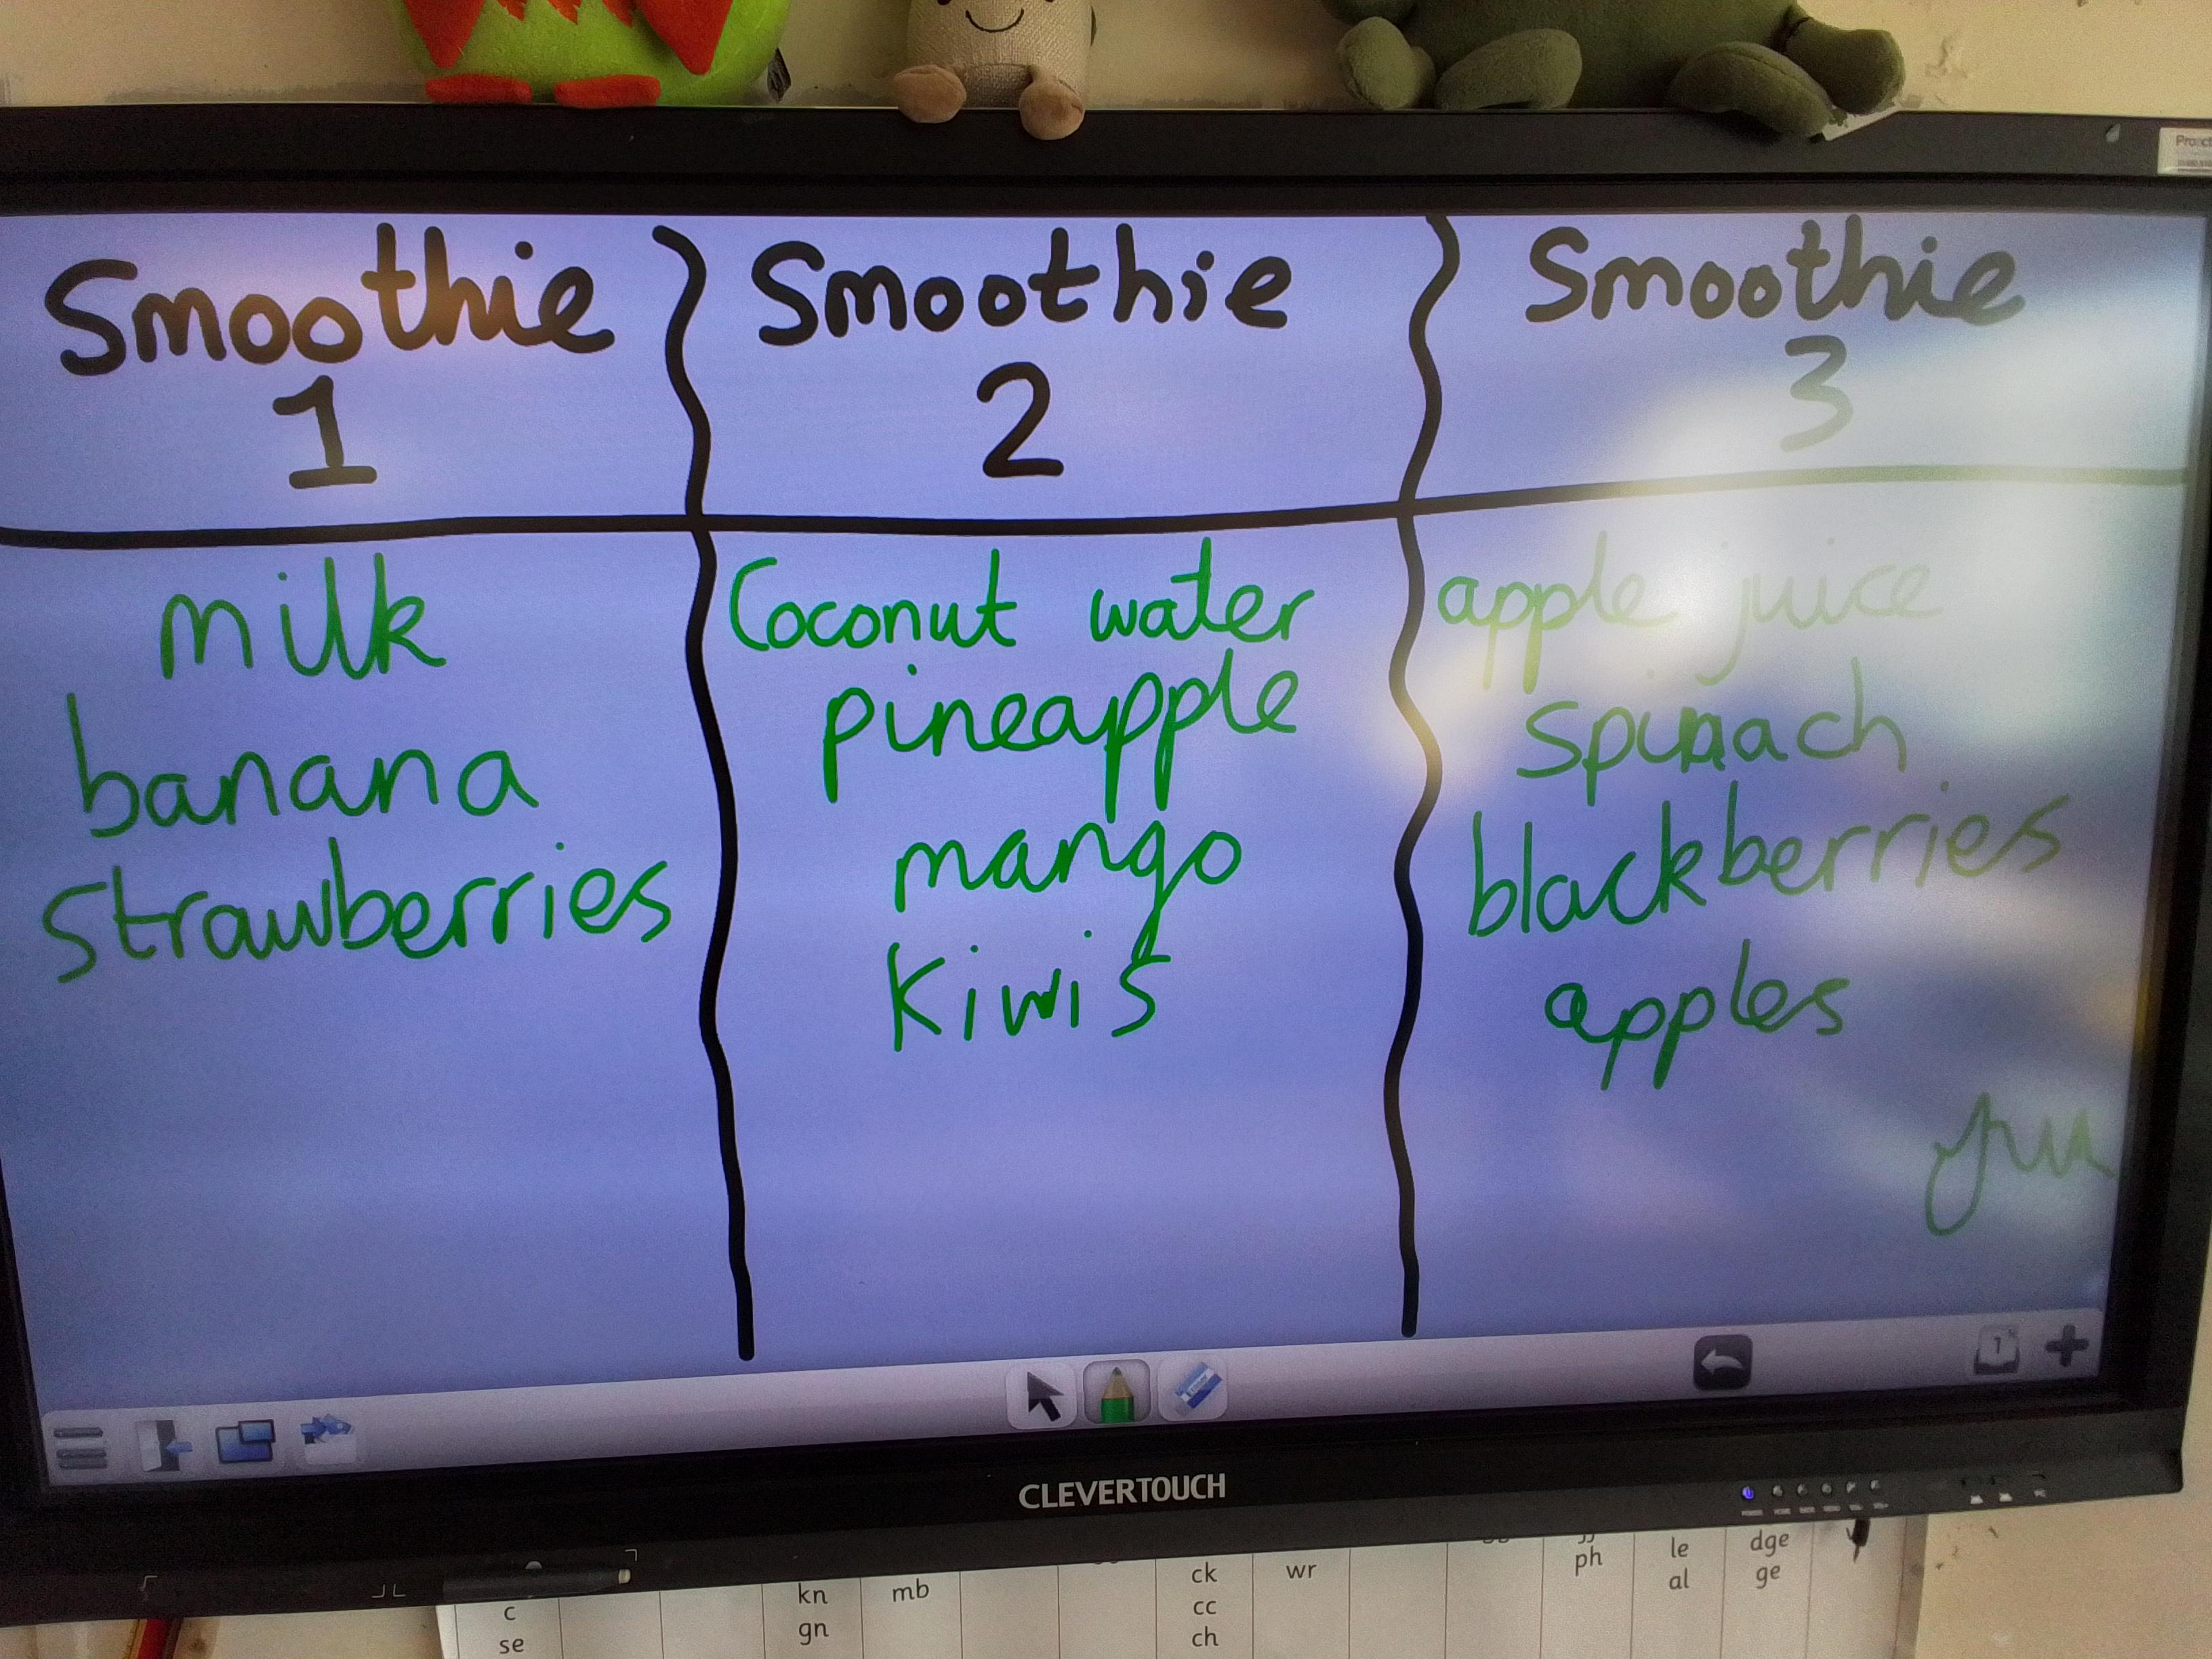 Smoothie
1
milk
banana
strawberries
Smoothie
2
Coconut water
pineapple
mango
Kiwis
Smoothie
3
apple juice
spinach
blackberries
apples
CLEVERTOUCH
c
se
kn
gn
mb
ck
cc
ch
wr
ph
le
al
dge
ge